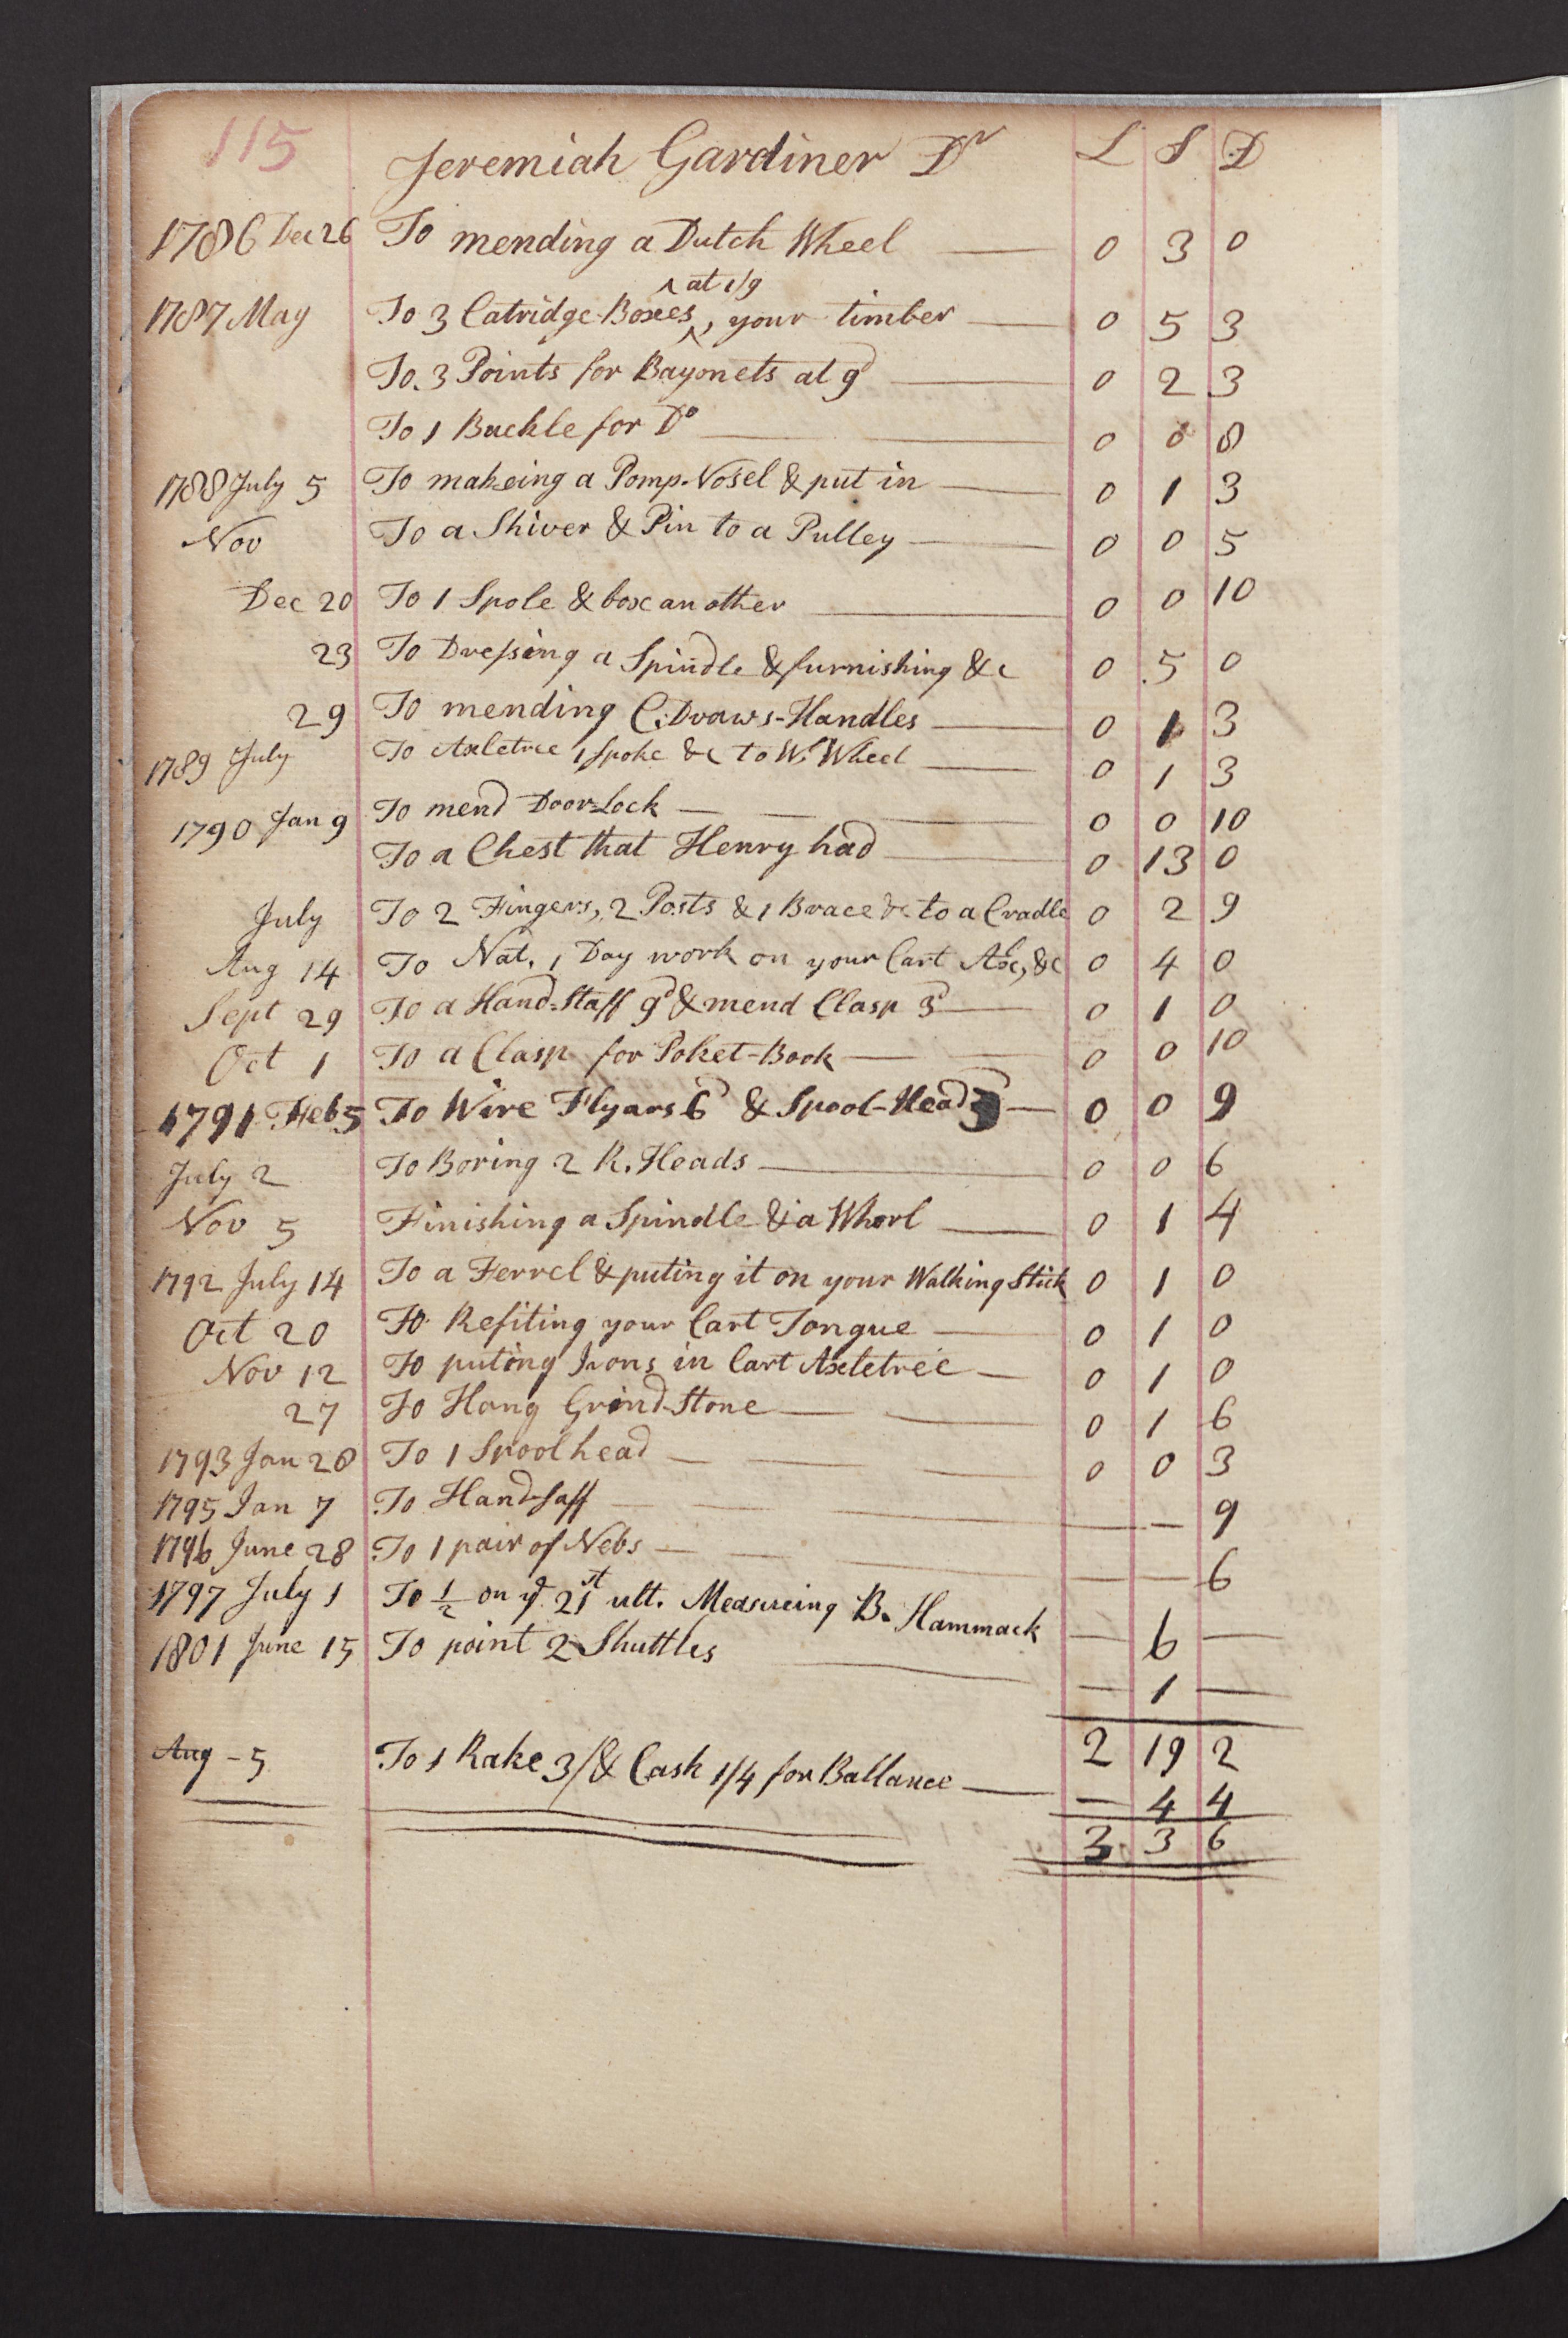 115 Jeremiah Gardiner Dr L S D
1786 Dec 26 To mending a Dutch Wheel — 0 3 0
^ at 1/9
1787 May To 3 Catridge-Boxes ^, your timber — 0 5 3
To 3 Points for Bayonets at 9d — 0 2 3
To 1 Buckle for Do — 0 0 8
1788 July 5 To makeing a Pomp-Nosel & put in — 0 1 3
Nov To a Shiver & Pin to a Pulley — 0 0 5
Dec 20 To 1 Spole & box another — 0 0 10
23 To Dressing a Spindle & furnishing &c 0 5 0
29 To mending C. Draws-Handles — 0 1 3
1789 July To Axletree 1 spoke &c to W. Wheel — 0 1 3
1790 Jan 9 To mend Door-Lock — 0 0 10
To a Chest that Henry had — 0 13 0
July To 2 Fingers, 2 Posts & 1 Brace &c to a Cradle 0 2 9
Aug 14 To Nat. 1 Day work on your Cart Axe, &c 0 4 0
Sept 29 To a Hand-Staff 9d & mend Clasp 3d — 0 1 0
Oct 1 To a Clasp for Poket-Book — 0 0 10
1791 Feb 5 To Wire Flyars 6d & Spool-Head 3 — 0 0 9
July 2 To Boring 2 R. Heads — 0 0 6
Nov 5 Finishing a Spindle & a Whorl — 0 1 4
1792 July 14 To a Ferrel & puting it on your Walking Stick 0 1 0
Oct 20 To Refiting your Cart Tongue — 0 1 0
Nov 12 To puting Irons in Cart Axletree — 0 1 0
27 To Hang Grind-Stone — 0 1 6
1793 Jan 28 To 1 Spool head — 0 0 3
1795 Jan 7 To Hand-saff — — — 9
1796 June 28 To 1 pair of Nebs — — — 6
1797 July 1 To 1/2 on ye 21st ult. Measureing B. Hammack — 6 —
1801 June 15 To point 2 Shuttles — — 1 —
2 19 2
Aug - 5 To 1 Rake 3/ & Cash 1/4 for Ballance — — 4 4
3 3 6